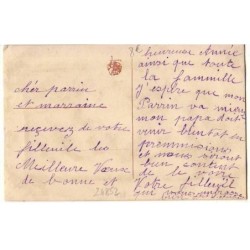 chér parrin
et marraine
recevez de votre
filleulle les
Meillaure Vœux
de bonne et
heureuse Année
ainsi que toute
la fammille
J'espère que mon
Parrin va mieux
mon papa doit
venir bientot en
permmission
et nous seront
bien content
de le voir
Votre filleul
qui vous